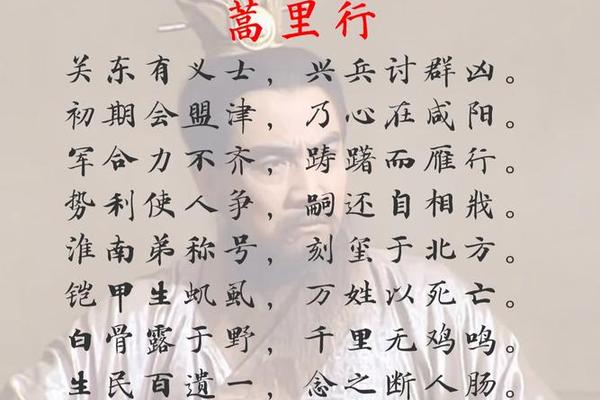 蒿里行
关东有义士，兴兵讨群凶。
初期会盟津，乃心在咸阳。
军合力不齐，踌躇而雁行。
势利使人争，嗣还自相戕。
淮南弟称号，刻玺于北方。
铠甲生虮虱，万姓以死亡。
白骨露于野，千里无鸡鸣。
生民百遗一，念之断人肠。